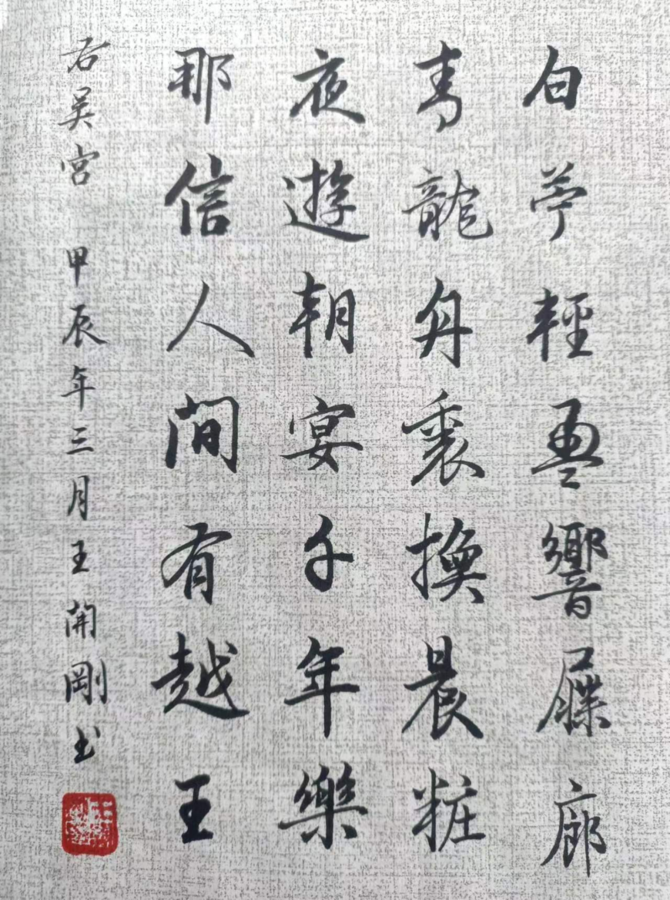 白苧輕盈響屧廊
青龍舟裏換晨粧
夜遊朝宴千年樂
那信人間有越王
右吳宮 甲辰年三月王開剛书